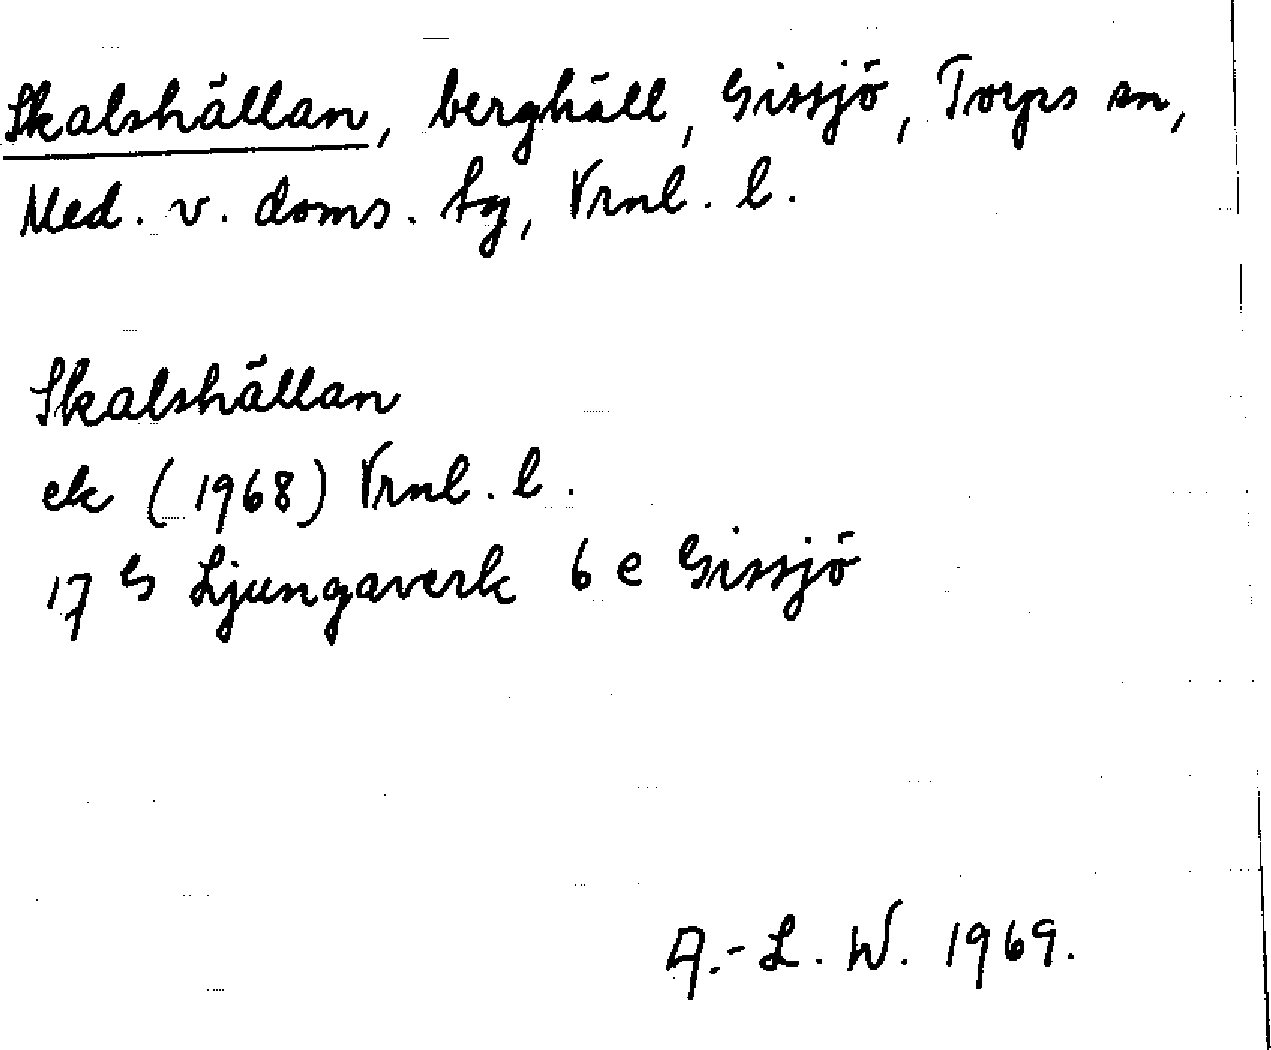 Skalshällan, berghäll, Gissjö, Torps sn,
Med. v. doms. tg, Vrnl. l.
Skalshällan
ek (1968) Vrnl. l.
17 G Ljungaverk 6 e Gissjö
A.-L. W. 1969.